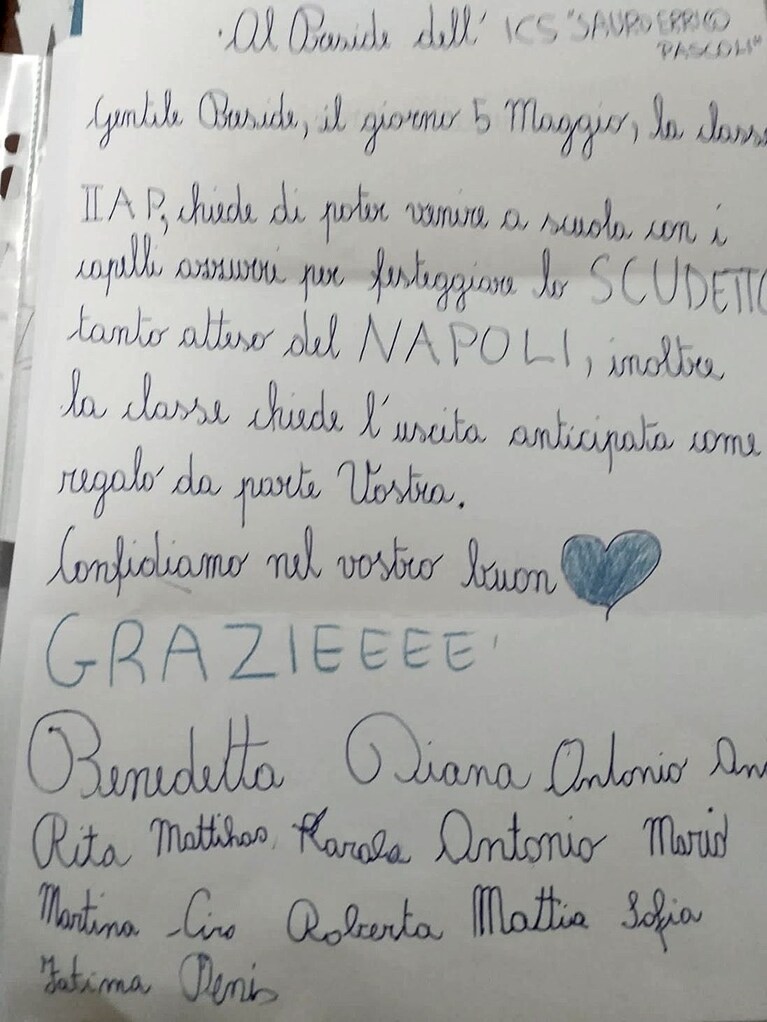 Al Preside dell' ICS "SAURO ERRICO
PASCOLI"
Gentile Preside, il giorno 5 Maggio, la classe
II A P, chiede di poter venire a scuola con i
capelli azzurri per festeggiare lo SCUDETTO
tanto atteso del NAPOLI, inoltre
la classe chiede l'uscita anticipata come
regalo da parte Vostra.
Confidiamo nel vostro buon
GRAZIEEEE
Benedetta Diana Antonio An
Rita Mattihas Karola Antonio Mario
Martina Ciro Roberta Mattia Sofia
Fatima Denis